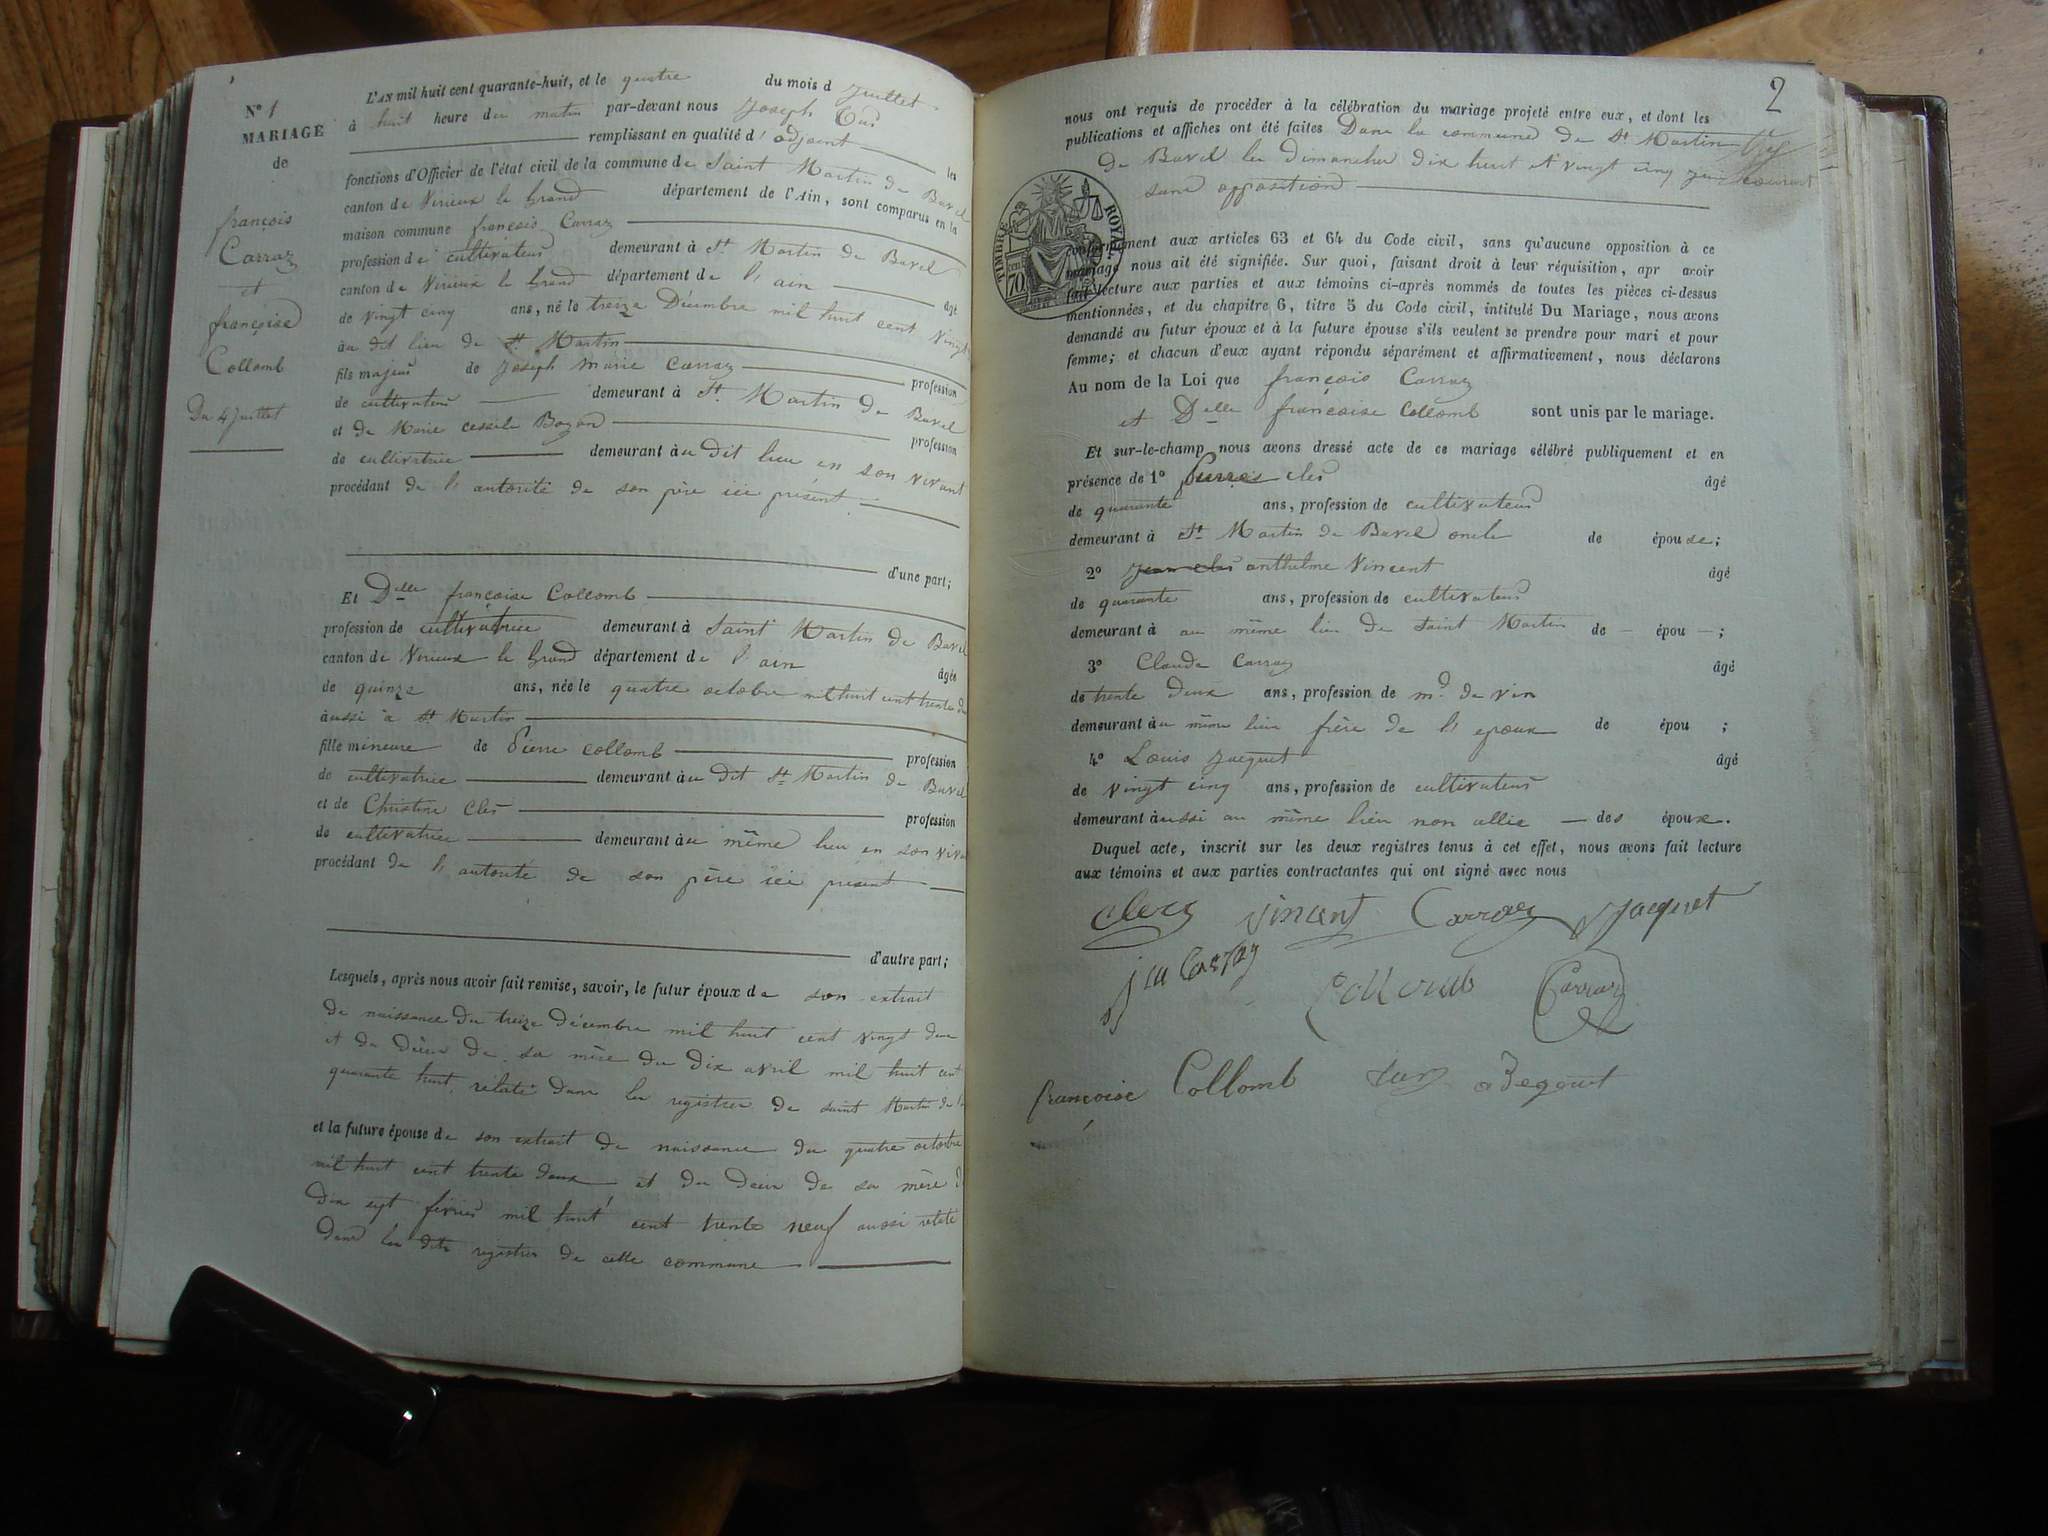 N° 1
MARIAGE
de
françois
Carraz
et
françoise
Collomb
Du 4 Juillet
L'AN mil huit cent quarante-huit, et le quatre du mois d Juillet
à huit heure du matin par-devant nous Joseph
remplissant en qualité d' adjoint les
fonctions d'Officier de l'état civil de la commune de Saint Martin de Bavel
canton de Virieux le Grand département de l'Ain, sont comparus en la
maison commune françois Carraz
profession de cultivateur demeurant à St Martin de Bavel
canton de Virieux le Grand département de l'ain âgé
de vingt cinq ans, né le treize Décembre mil huit cent vingt
au dit lieu de St Martin
fils majeur de Joseph Marie Carraz profession
de cultivateur demeurant à St Martin de Bavel
et de Marie cessile Bozon profession
de cultivatrice demeurant au dit lieu en son vivant
procédant de l'autorité de son père ici présent
d'une part;
Et Delle françoise Collomb
profession de cultivatrice demeurant à Saint Martin de Bavel
canton de Virieux le Grand département de l'ain âgée
de quinze ans, née le quatre octobre mil huit cent trente
aussi à St Martin
fille mineure de Pierre Collomb profession
de cultivatrice demeurant au dit St Martin de Bavel
et de Christine Clés profession
de cultivatrice demeurant au même lieu en son
procédant de l'autorité de son père ici présent
d'autre part;
Lesquels, après nous avoir fait remise, savoir, le futur époux de son extrait
de naissance du treize décembre mil huit cent vingt deux
et du décès de sa mère du dix avril mil huit cent
quarante huit, relaté dans les registres de saint Martin de
et la future épouse de son extrait de naissance du quatre octobre
mil huit cent trente deux et du décès de sa mère
dix sept février mil huit cent trente neuf aussi relaté
dans les dits registres de cette commune
2
nous ont requis de procéder à la célébration du mariage projeté entre eux, et dont les
publications et affiches ont été faites Dans la commune de St Martin
de Bavel les Dimanches dix huit et vingt cinq juin courant
sans opposition
TIMBRE ROYAL
70
conformément aux articles 63 et 64 du Code civil, sans qu'aucune opposition à ce
mariage nous ait été signifiée. Sur quoi, faisant droit à leur réquisition, apr avoir
fait lecture aux parties et aux témoins ci-après nommés de toutes les pièces ci-dessus
mentionnées, et du chapitre 6, titre 5 du Code civil, intitulé Du Mariage, nous avons
demandé au futur époux et à la future épouse s'ils veulent se prendre pour mari et pour
femme; et chacun d'eux ayant répondu séparément et affirmativement, nous déclarons
Au nom de la Loi que françois Carraz
et Delle françoise Collomb sont unis par le mariage.
Et sur-le-champ nous avons dressé acte de ce mariage célébré publiquement et en
présence de 1° Pierre clés âgé
de quarante ans, profession de cultivateur
demeurant à St Martin de Bavel oncle de épouse;
2° Jean clés anthelme Vincent âgé
de quarante ans, profession de cultivateur
demeurant à au même lieu de Saint Martin de – épou –;
3° Claude Carraz âgé
de trente deux ans, profession de md de vin
demeurant au même lieu frère de l'époux de épou ;
4° Louis Jacquet âgé
de vingt cinq ans, profession de cultivateur
demeurant aussi au même lieu non allié — des époux.
Duquel acte, inscrit sur les deux registres tenus à cet effet, nous avons fait lecture
aux témoins et aux parties contractantes qui ont signé avec nous
Clerc Vincent Carraz Jacquet
Collomb Carraz
françoise Collomb